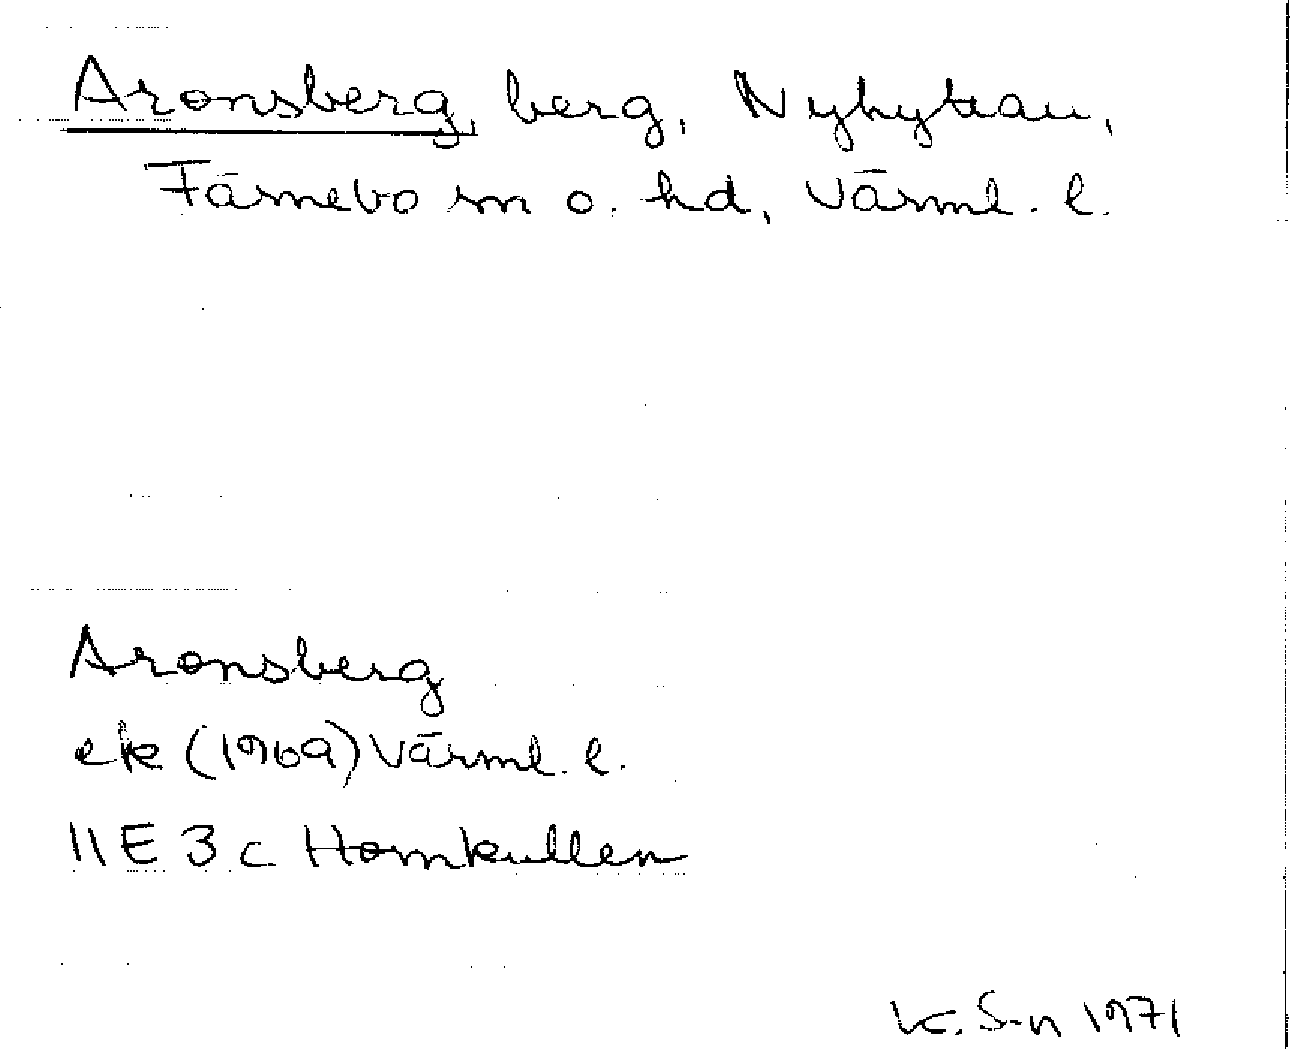 Aronsberg, berg, Nyhyttan,
Färnebo sn o. hd, Värml. l.
Aronsberg
ek (1969) Värml. l.
11E 3c Hornkullen
K. S-n 1971